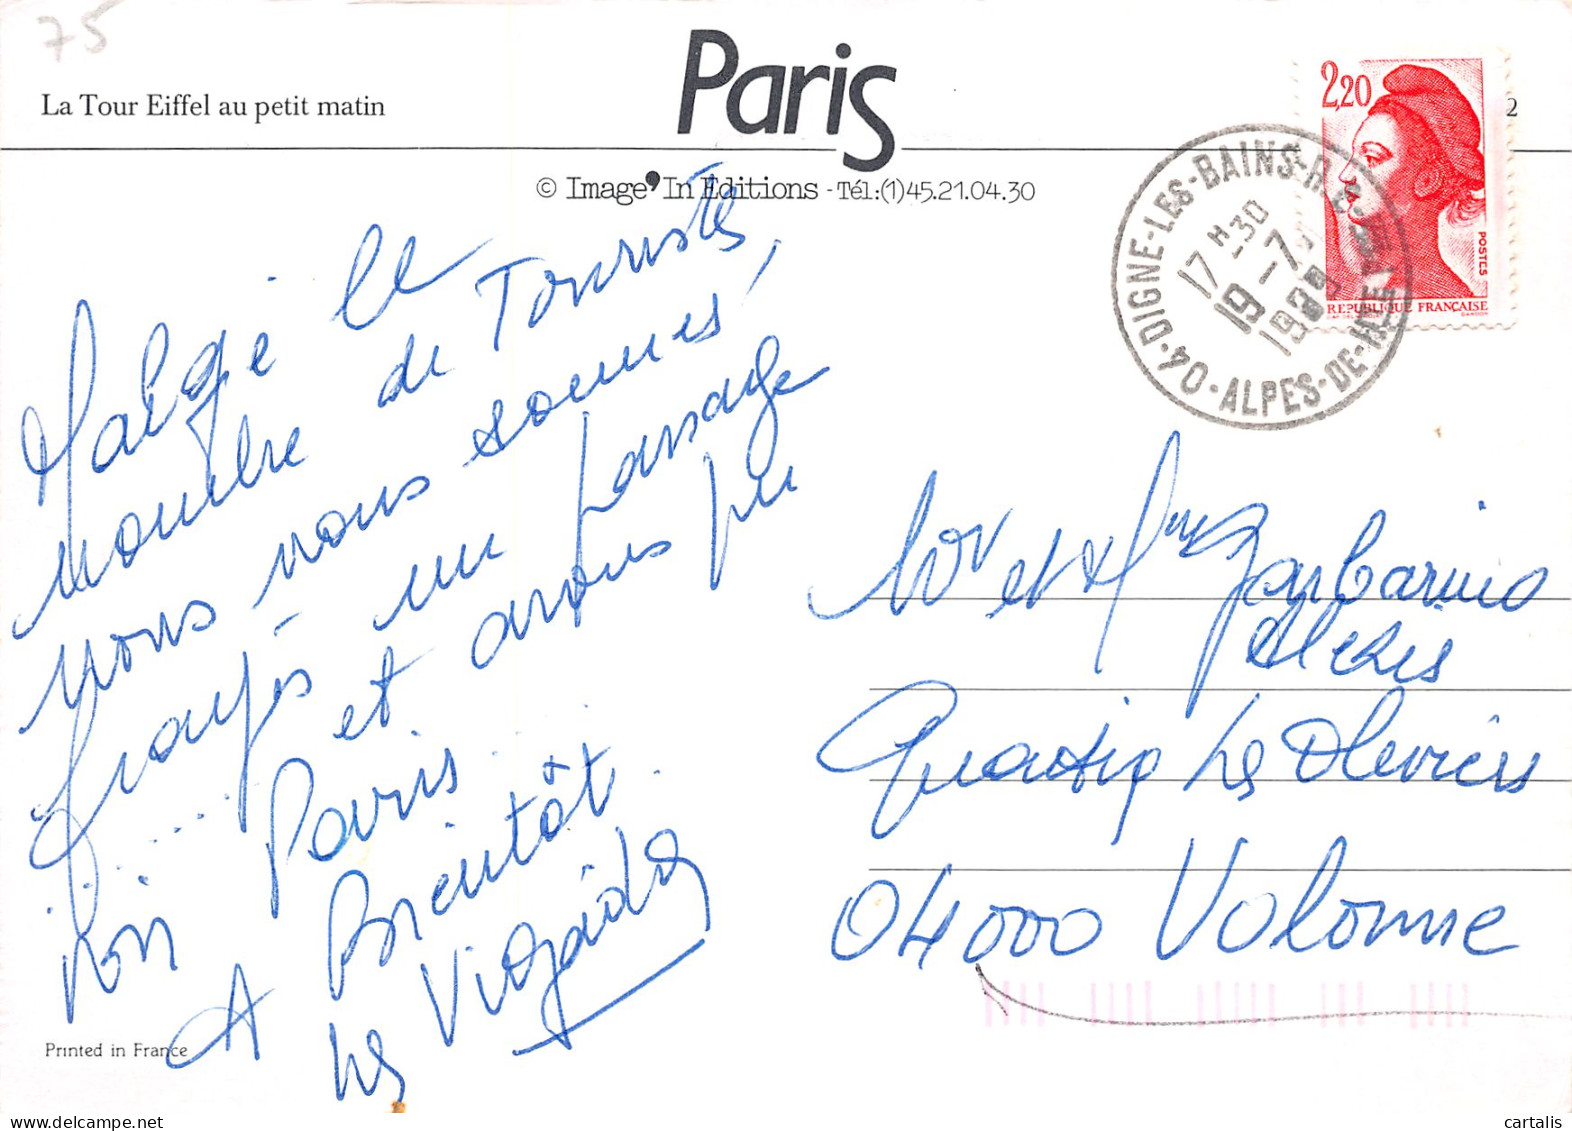 75
La Tour Eiffel au petit matin
Paris
2
© Image'In Editions - Tél:(1)45.21.04.30
2,20
POSTES
REPUBLIQUE FRANÇAISE
DIGNE-LES-BAINS-R.P.
17 H-30
19-7
04-ALPES-DE-HTE
Malgé le
nombre de Touristes,
nous nous sommes
frayés un passage
.......... et avons pu
Voir Paris...
A Bientôt.
Les
Mr et Mme
Alexis
Quartier Les Oliviers
04000 Volonne
Printed in France
cartalis